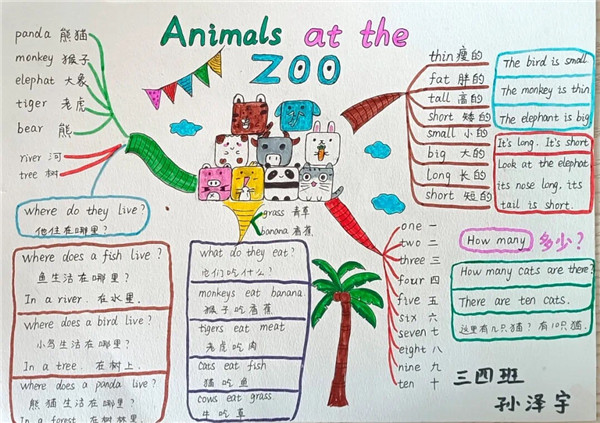 Animals at the
ZOO
panda 熊猫
monkey 猴子
elephat 大象
tiger 老虎
bear 熊
river 河
tree 树
where do they live?
他住在哪里?
where does a fish live?
鱼生活在哪里?
In a river. 在水里.
where does a bird live?
小鸟生活在哪里?
In a tree. 在树上.
where does a panda live?
熊猫生活在哪里?
In a forest. 在树林里.
grass 青草
banana 香蕉
what do they eat?
它们吃什么?
monkeys eat banana.
猴子吃香蕉
tigers eat meat
老虎吃肉
cats eat fish
猫吃鱼
cows eat grass
牛吃草
thin 瘦的
fat 胖的
tall 高的
short 矮的
small 小的
big 大的
long 长的
short 短的
The bird is small
The monkey is thin
The elephant is big
It's long. It's short
Look at the elephat
its nose long, its
tail is short.
one 一
two 二
three 三
four 四
five 五
six 六
seven 七
eight 八
nine 九
ten 十
How many 多少?
How many cats are there?
There are ten cats.
这里有几只猫? 有10只猫.
三四班
孙泽宇